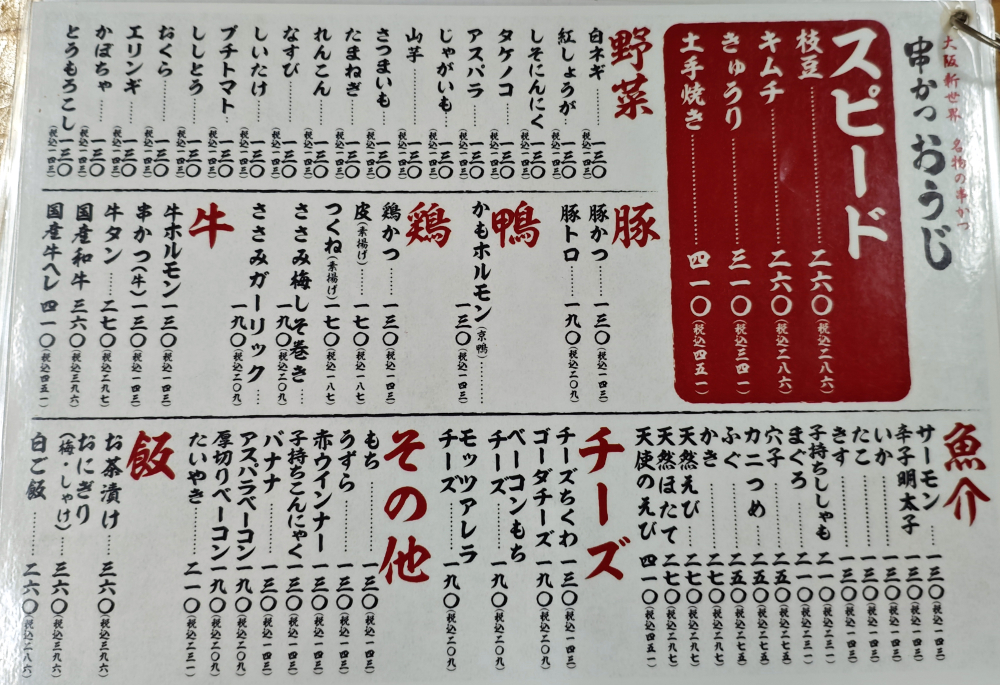 大阪新世界 名物の串かつ
串かつ おうじ
スピード
枝豆 二六〇(税込二八六)
キムチ 二六〇(税込二八六)
きゅうり 三一〇(税込三四一)
土手焼き 四一〇(税込四五一)
野菜
白ネギ 一三〇(税込一四三)
紅しょうが 一三〇(税込一四三)
しそにんにく 一三〇(税込一四三)
タケノコ 一三〇(税込一四三)
アスパラ 一三〇(税込一四三)
じゃがいも 一三〇(税込一四三)
山芋 一三〇(税込一四三)
さつまいも 一三〇(税込一四三)
たまねぎ 一三〇(税込一四三)
れんこん 一三〇(税込一四三)
なすび 一三〇(税込一四三)
しいたけ 一三〇(税込一四三)
プチトマト 一三〇(税込一四三)
ししとう 一三〇(税込一四三)
おくら 一三〇(税込一四三)
エリンギ 一三〇(税込一四三)
かぼちゃ 一三〇(税込一四三)
とうもろこし 一三〇(税込一四三)
豚
豚かつ 一三〇(税込一四三)
豚トロ 一九〇(税込二〇九)
鴨
かもホルモン(京鴨) 一三〇(税込一四三)
鶏
鶏かつ 一三〇(税込一四三)
皮(素揚げ) 一七〇(税込一八七)
つくね(素揚げ) 一七〇(税込一八七)
ささみ梅しそ巻き 一九〇(税込二〇九)
ささみガーリック 一九〇(税込二〇九)
牛
牛ホルモン 一三〇(税込一四三)
串かつ(牛) 一三〇(税込一四三)
牛タン 二七〇(税込二九七)
国産和牛 三六〇(税込三九六)
国産牛ヘレ 四一〇(税込四五一)
魚介
サーモン 一三〇(税込一四三)
辛子明太子 一三〇(税込一四三)
いか 一三〇(税込一四三)
たこ 一三〇(税込一四三)
きす 一三〇(税込一四三)
子持ちししゃも 二一〇(税込二三一)
まぐろ 二一〇(税込二三一)
穴子 二五〇(税込二七五)
カニつめ 二五〇(税込二七五)
ふぐ 二五〇(税込二七五)
かき 二七〇(税込二九七)
天然えび 二七〇(税込二九七)
天然ほたて 二七〇(税込二九七)
天使のえび 四一〇(税込四五一)
チーズ
チーズちくわ 一三〇(税込一四三)
ゴーダチーズ 一九〇(税込二〇九)
ベーコンもち
チーズ 一九〇(税込二〇九)
モッツアレラ
チーズ 一九〇(税込二〇九)
その他
もち 一三〇(税込一四三)
うずら 一三〇(税込一四三)
赤ウインナー 一三〇(税込一四三)
子持ちこんにゃく 一三〇(税込一四三)
バナナ 一三〇(税込一四三)
アスパラベーコン 一九〇(税込二〇九)
厚切りベーコン 一九〇(税込二〇九)
たいやき 二一〇(税込二三一)
飯
お茶漬け 三六〇(税込三九六)
おにぎり
(梅・しゃけ) 三六〇(税込三九六)
白ご飯 二六〇(税込二八六)